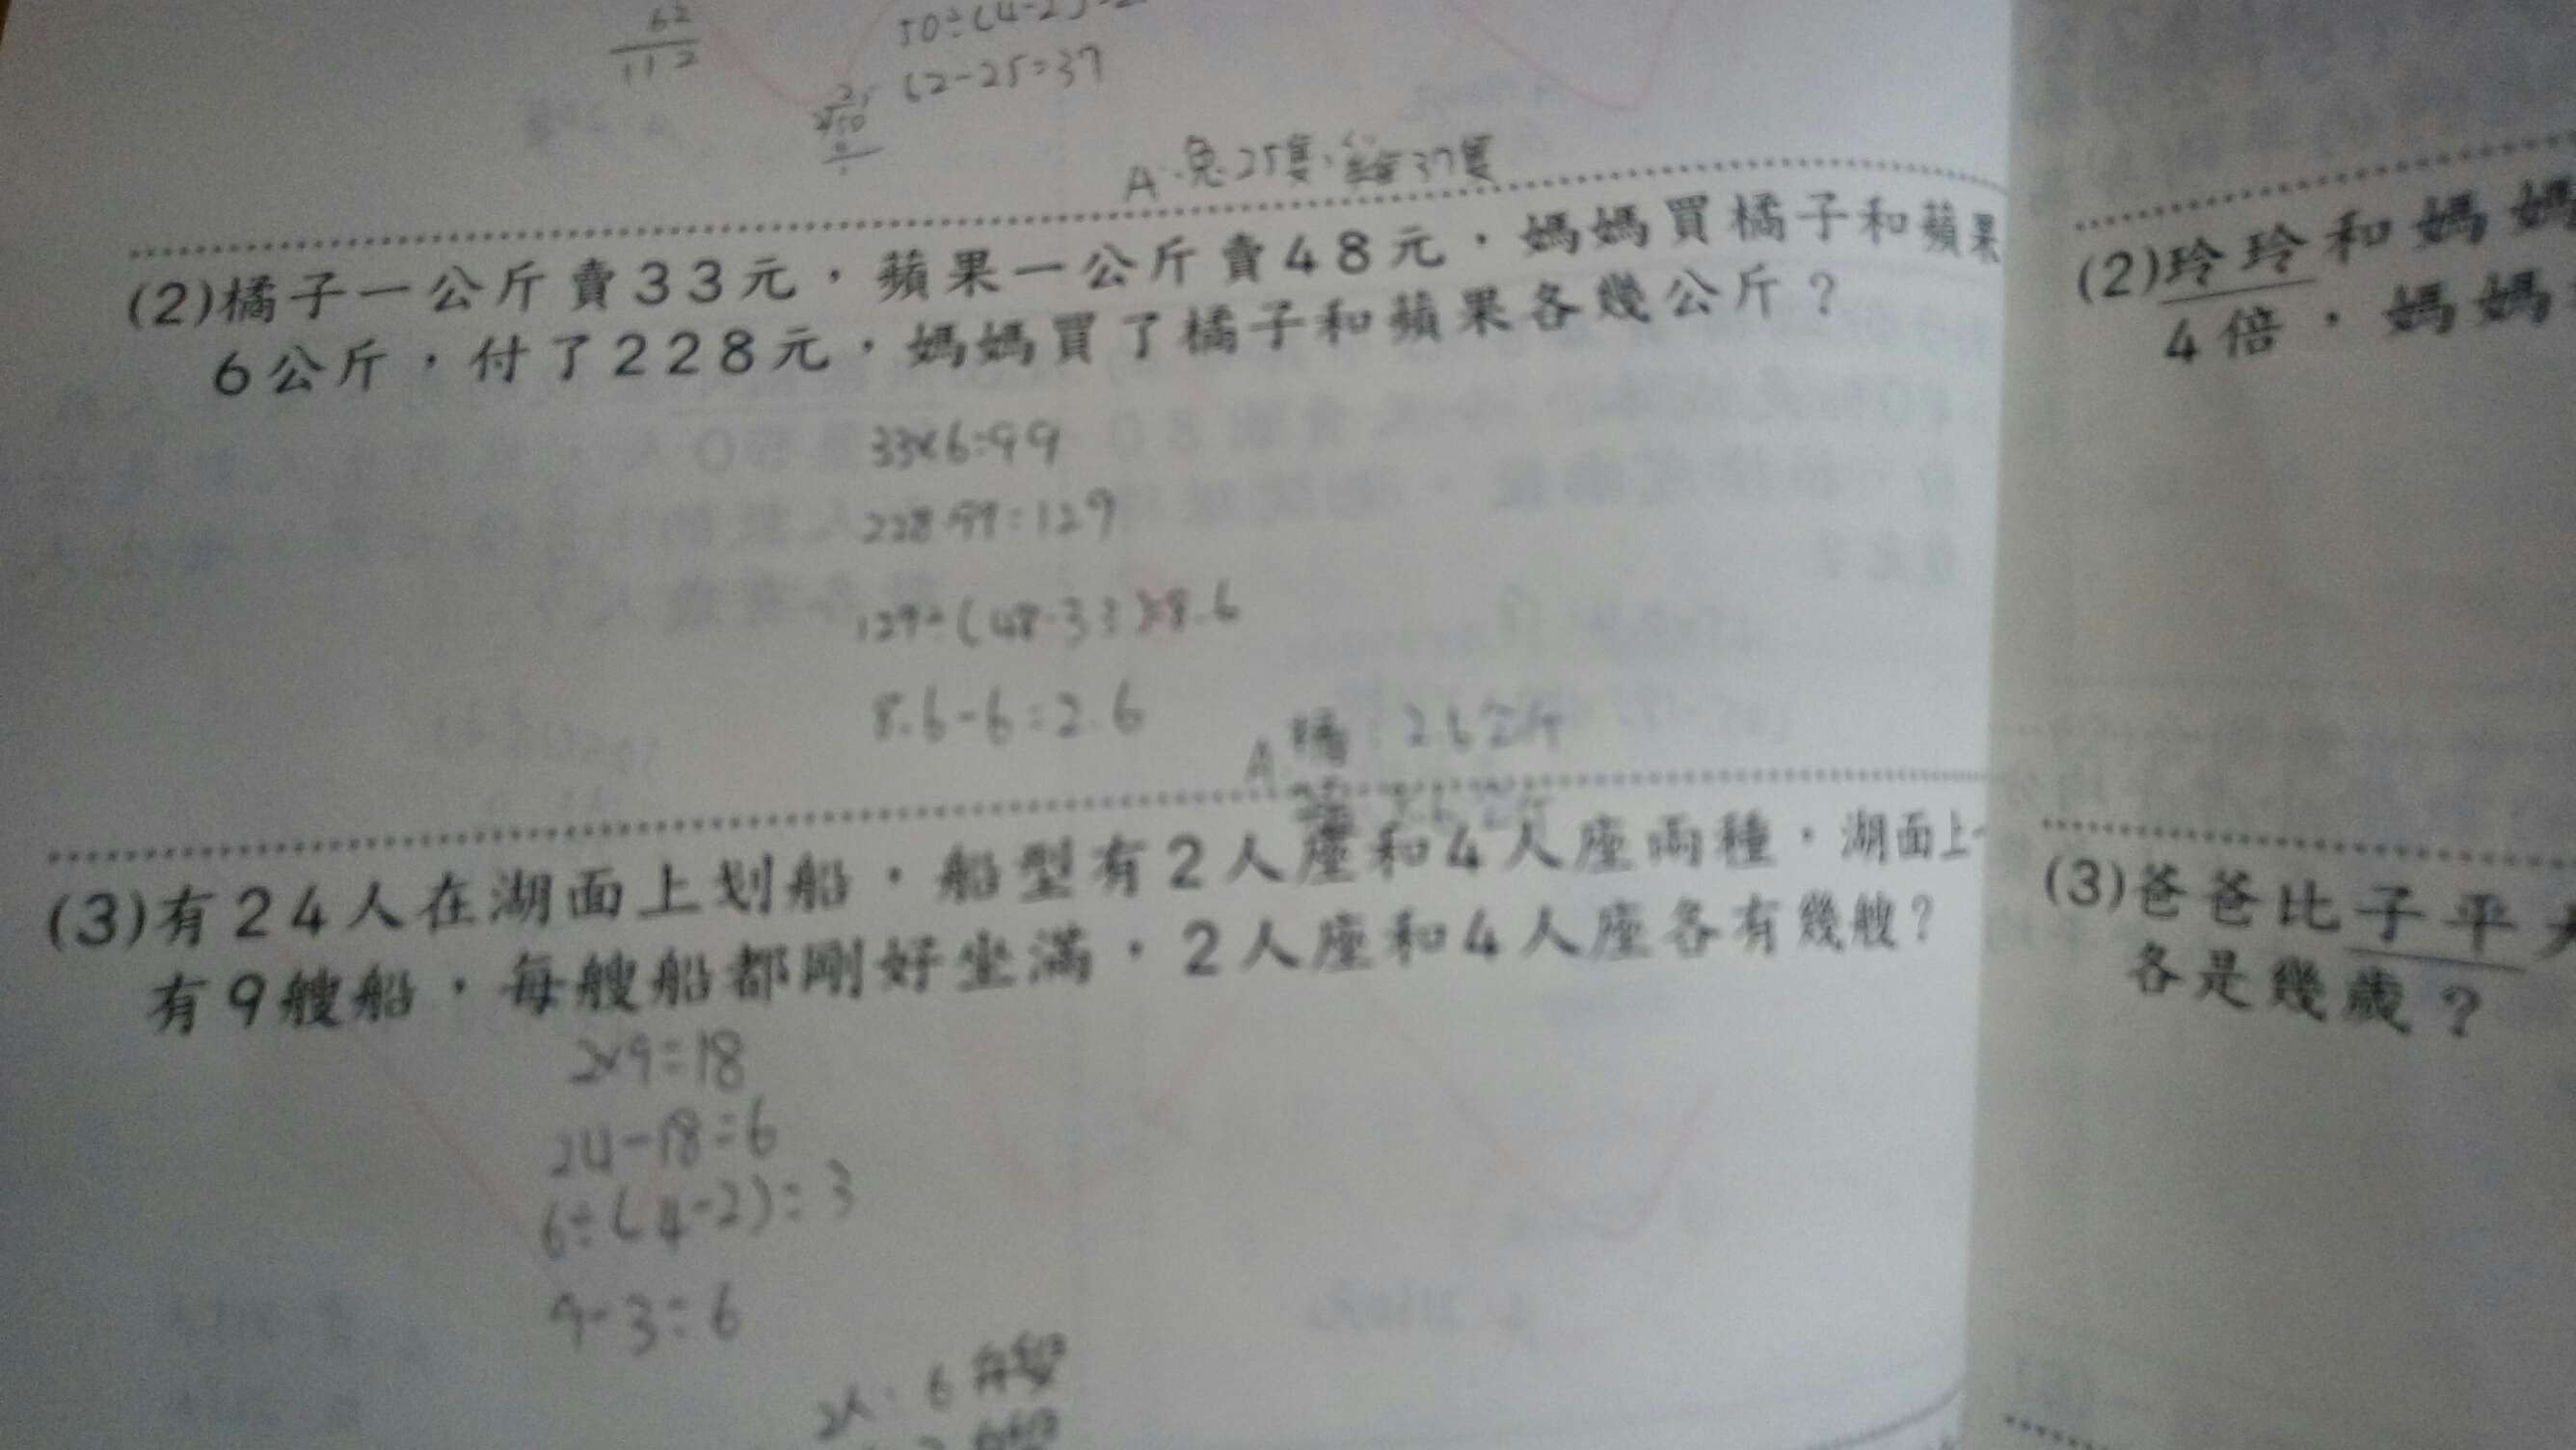 62
112
50÷(4-2)=2
62-25=37
25
2√50
A:兔25隻,雞37隻
(2)橘子一公斤賣33元,蘋果一公斤賣48元,媽媽買橘子和蘋果
6公斤,付了228元,媽媽買了橘子和蘋果各幾公斤?
33×6=99
228-99=129
129÷(48-33)=8.6
8.6-6=2.6
A 橘:2.6公斤
蘋:8.6公斤
(3)有24人在湖面上划船,船型有2人座和4人座兩種,湖面上一
有9艘船,每艘船都剛好坐滿,2人座和4人座各有幾艘?
2×9=18
24-18=6
6÷(4-2)=3
9-3=6
2人:6艘
(2)玲玲和媽媽
4倍,媽媽
(3)爸爸比子平
各是幾歲?